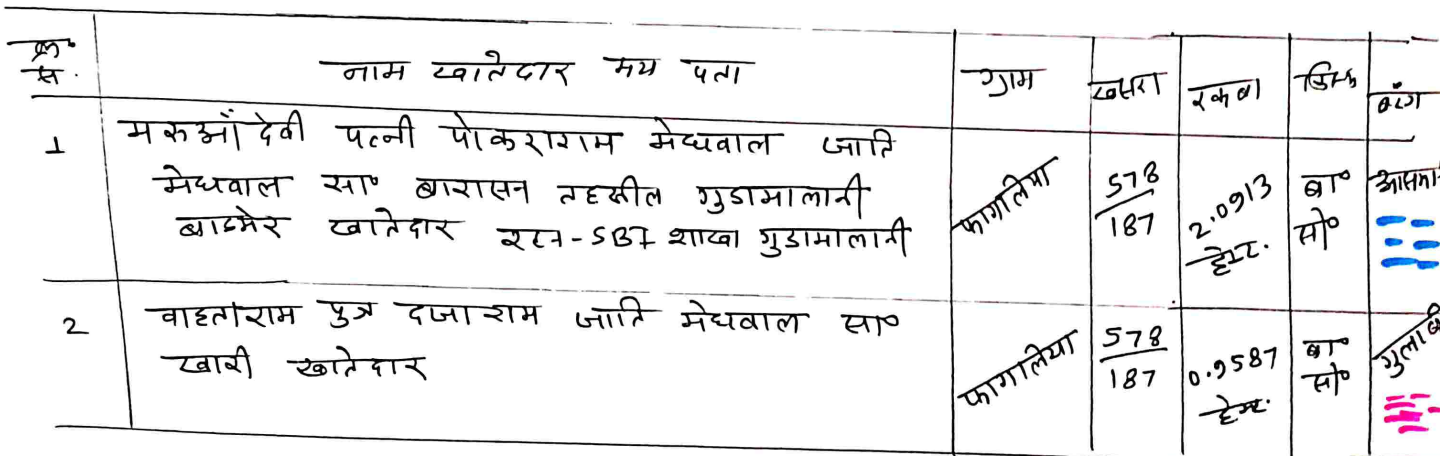 क्र० स. नाम खातेदार मय पता ग्राम खसरा रकबा किस्म रंग
1 मरूआँ देवी पत्नी पोकराराम मेघवाल जाति
मेघवाल सा० बारासन तहसील गुडामालानी
बाडमेर खातेदार रहन-SBI शाखा गुडामालानी
फागलिया 578/187 2.0913 हेक्ट. बा० सो० आसमानी
2 वाहताराम पुत्र दजाराम जाति मेघवाल सा०
खारी खातेदार
फागलिया 578/187 0.9587 हेक्ट. बा० सो० गुलाबी